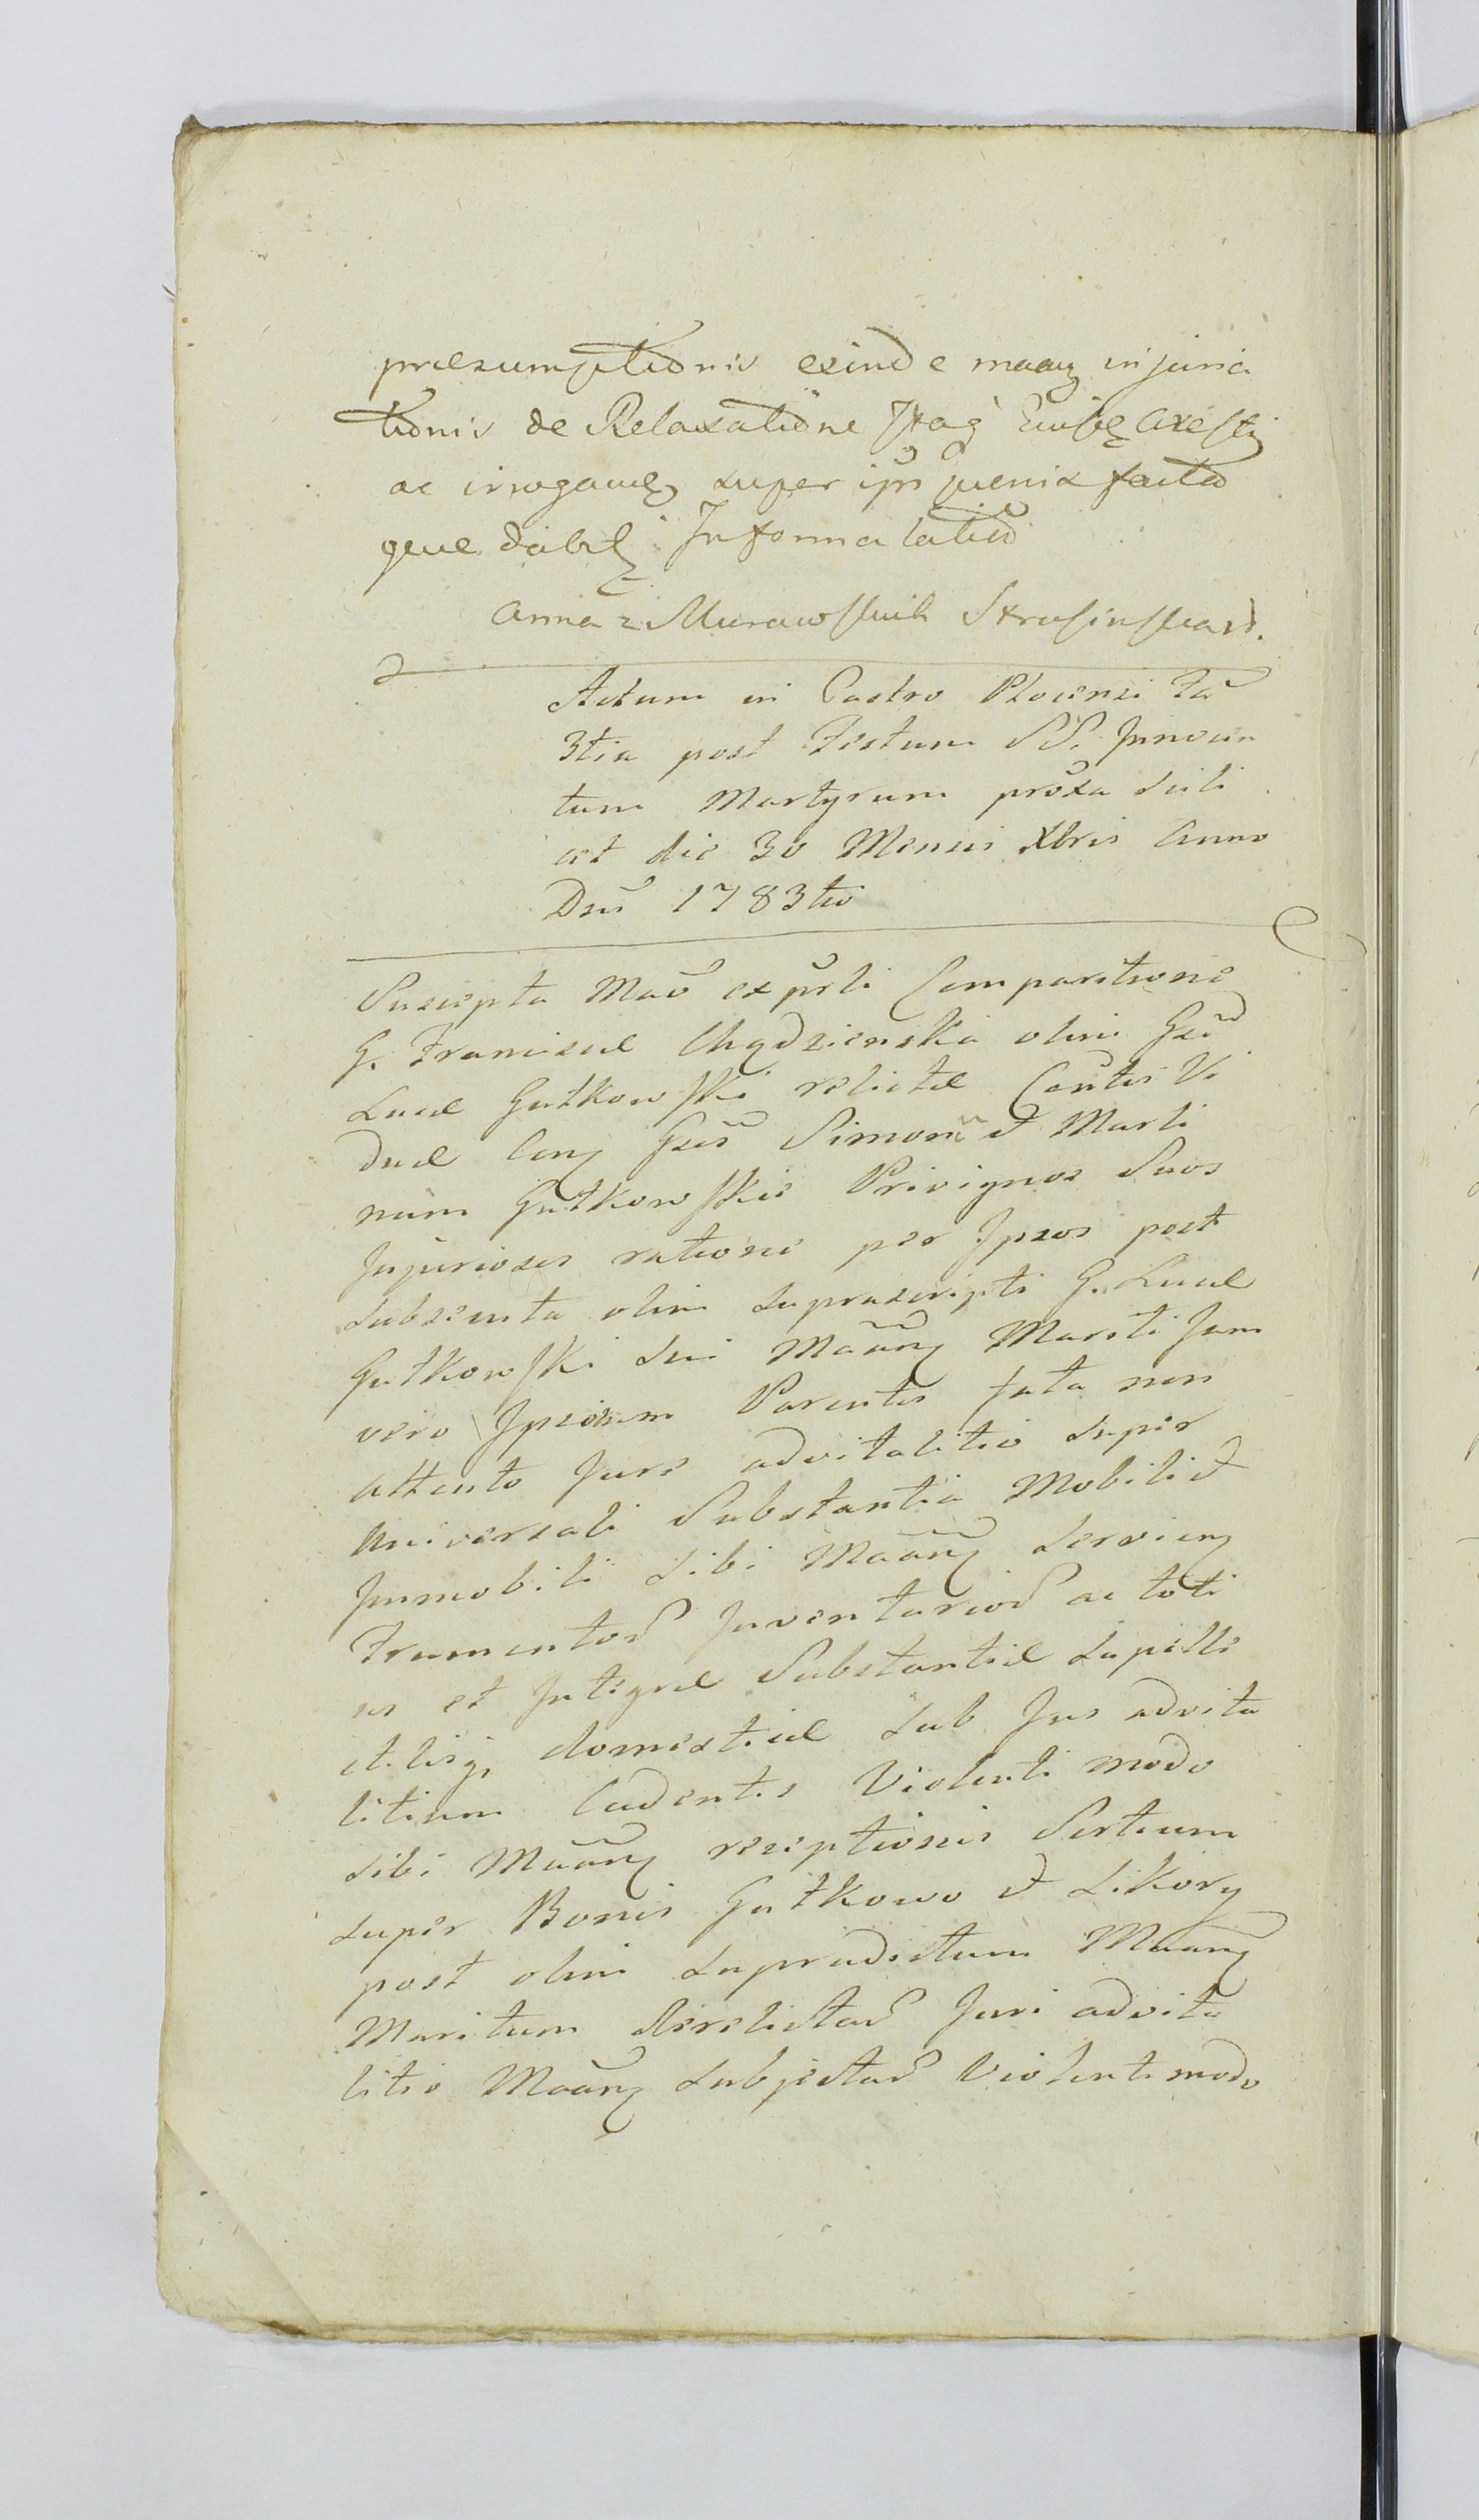 præsumptionis exinde maãz injuria
tionis de Relaxatione aresti
ac irrogaue super ipũ pœnis facta
quæ dabit Informatatio
Anna z Murawskich Strusinska
Actum in Castro Plocensi Fã
3tia post Festum SS. Innocen
tum Martyrum prõxa scili
cet die 30 Mensis Xbris Anno
Dnĩ 1783tio
Suscepta Maõ ex pñti Comparitione
G. Franciscæ Chądzienska olim Gsĩ
Lucæ Gutkowski relictæ Consũtis Vi
duæ Cong Gsõs Simonem et Marti
num Gutkowskie Privignos Suos
Injuriosos ratione per Ipsos post
subsecuta olim suprascripti G. Lucæ
Gutkowski sui Maãnz Mariti Jam
vero Ipsorum Parentis fata non
attento Jure advitalitio super
universali Substantia Mobili et
Immobili sibi Maãnz servien
Frumentor Inventarior ac toti
us et Integræ Substantiæ supelle
ctilisq domesticæ sub Jus advita
litium Cadentis Violenti modo
sibi Maãnz receptionis Sortium
super Bonis Gutkowo et Sikory
post olim supradictum Maãnz
Maritum derelictar Juri advita
litio Maãnz subjectar Violenti modo